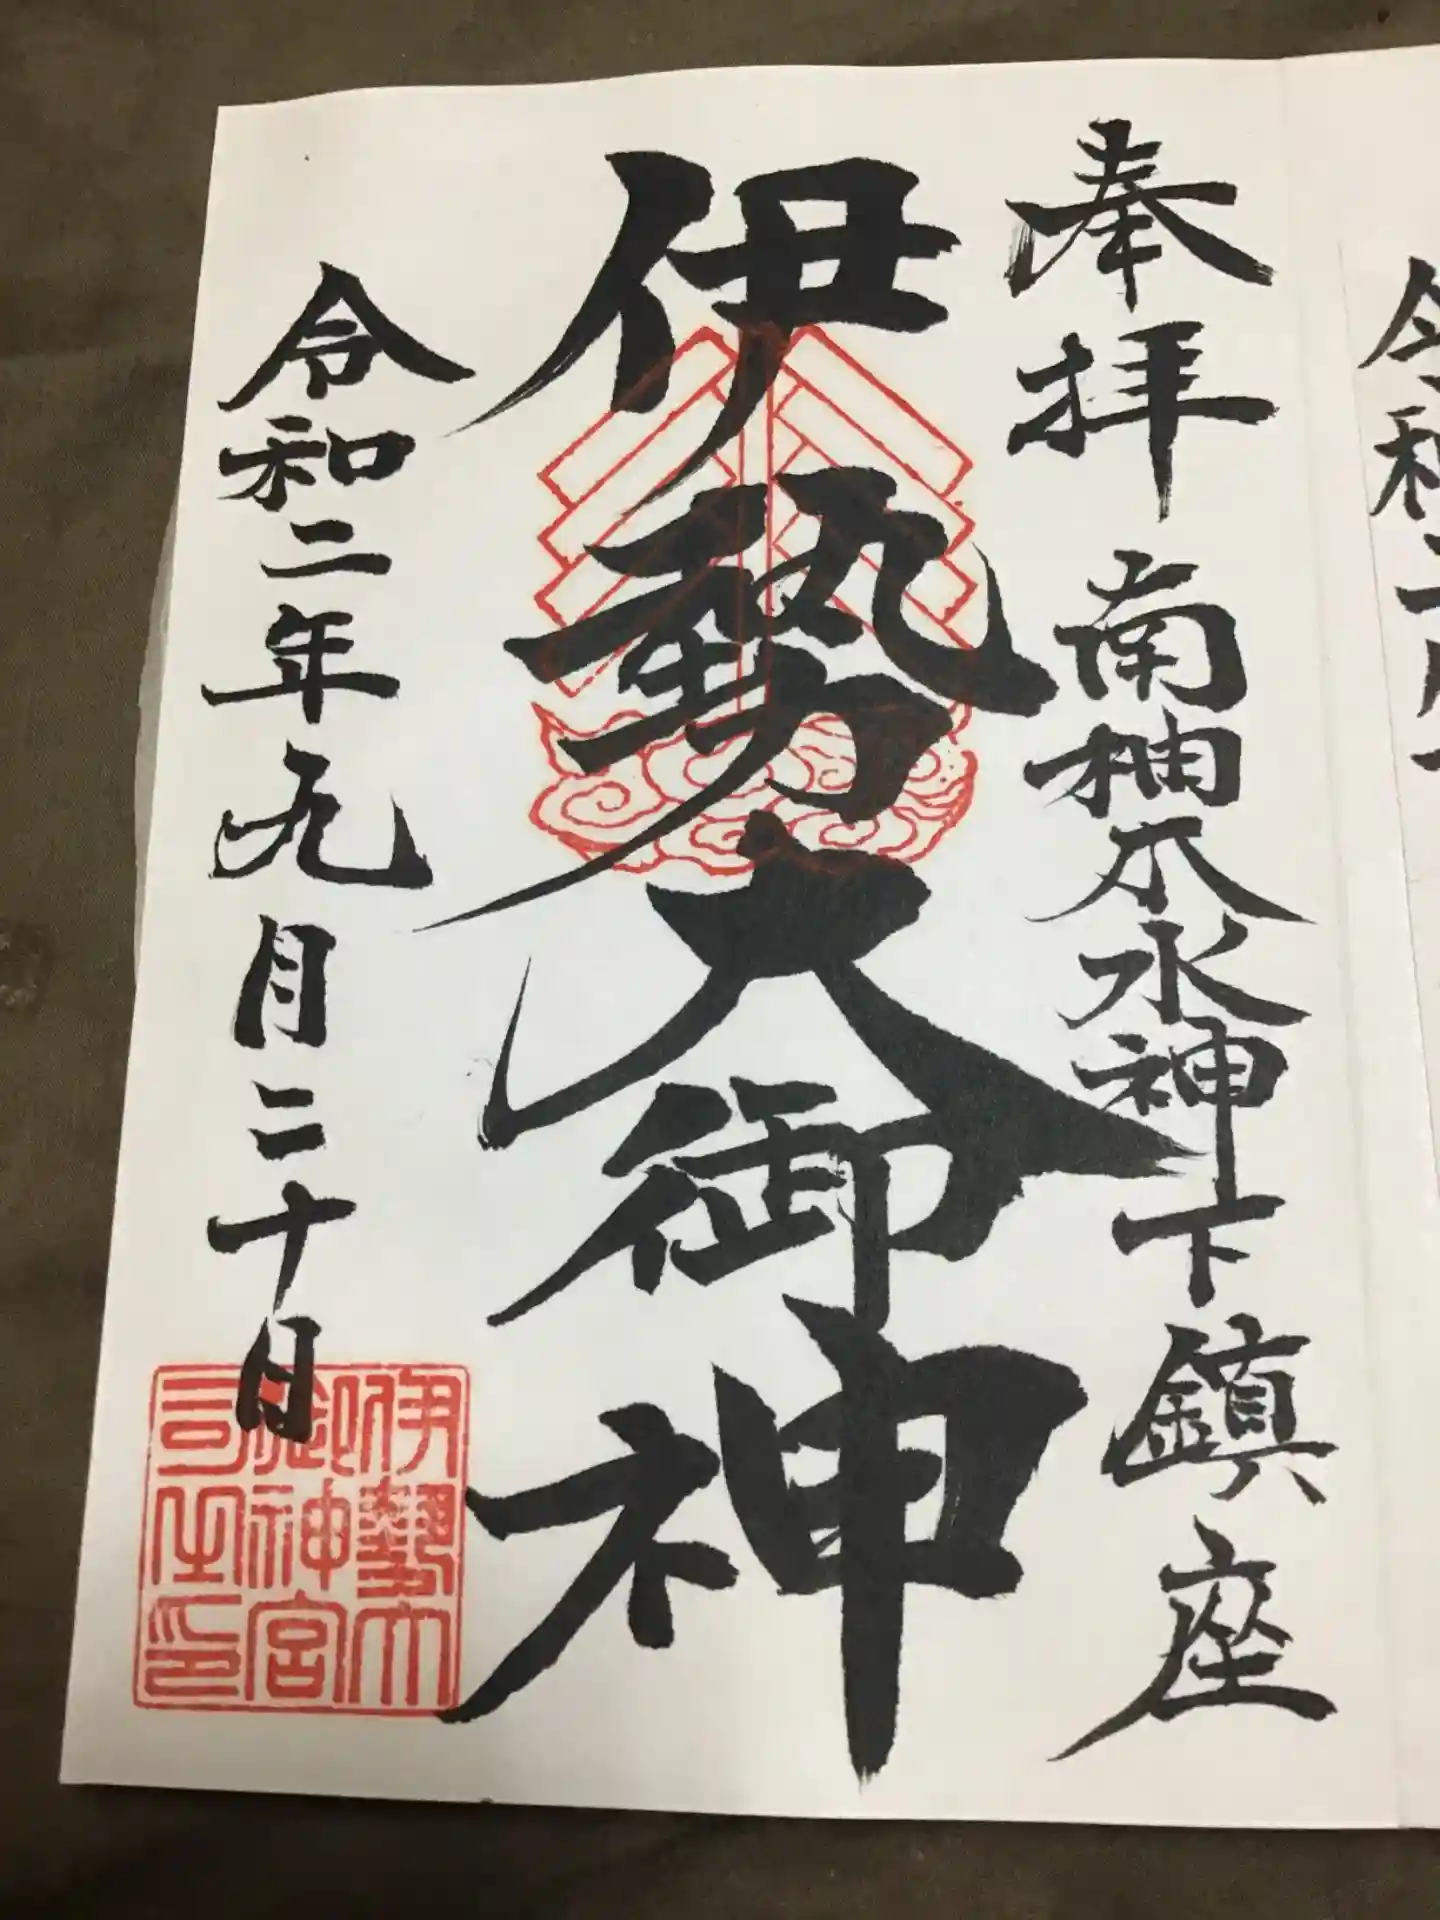 奉拝 南柚木水神下鎮座
伊勢大御神
令和二年九月二十日
伊勢大
御神宮
司之印
令和二